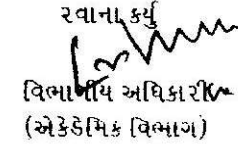 રવાના કર્યુ
વિભાગીય અધિકારી
(એકેડેમિક વિભાગ)